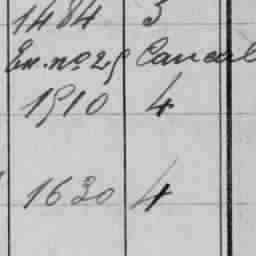 1484 3
En. nº 29 Cancal
1910 4
1630 4